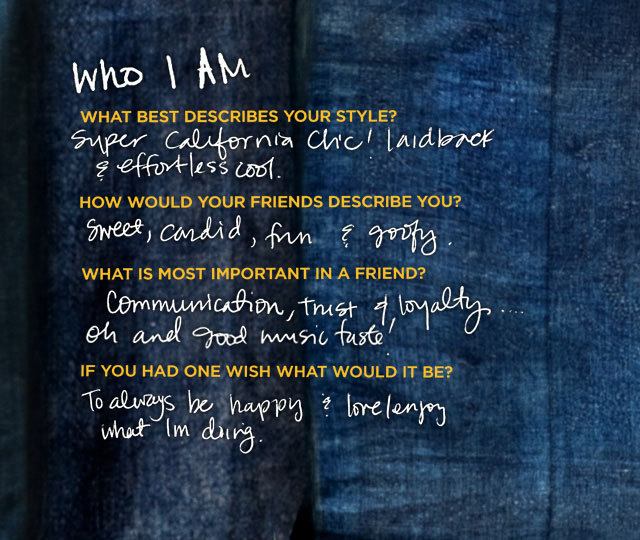 WHO I AM
WHAT BEST DESCRIBES YOUR STYLE?
Super California Chic! laidback
& effortless cool.
HOW WOULD YOUR FRIENDS DESCRIBE YOU?
Sweet, candid, fun & goofy.
WHAT IS MOST IMPORTANT IN A FRIEND?
Communication, trust & loyalty ....
oh and good music taste,
IF YOU HAD ONE WISH WHAT WOULD IT BE?
To always be happy & love/enjoy
what Im doing.